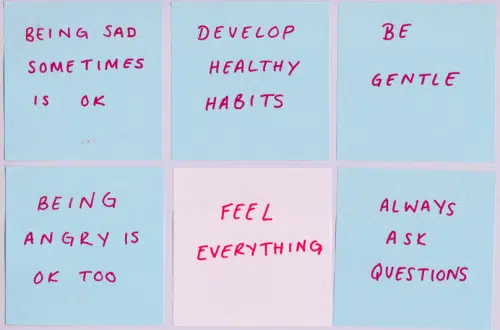 BEING SAD
SOMETIMES
IS OK
...
DEVELOP
HEALTHY
HABITS
BE
GENTLE
BEING
ANGRY IS
OK TOO
FEEL
EVERYTHING
ALWAYS
ASK
QUESTIONS